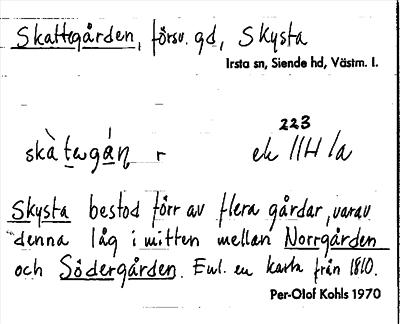 Skattegården, försv. gd, Skysta
Irsta sn, Siende hd, Västm. l.
223
skàtegáɳ r ek 11H 1a
Skysta bestod förr av flera gårdar, varav
denna låg i mitten mellan Norrgården
och Södergården. Enl. en karta från 1810.
Per-Olof Kohls 1970